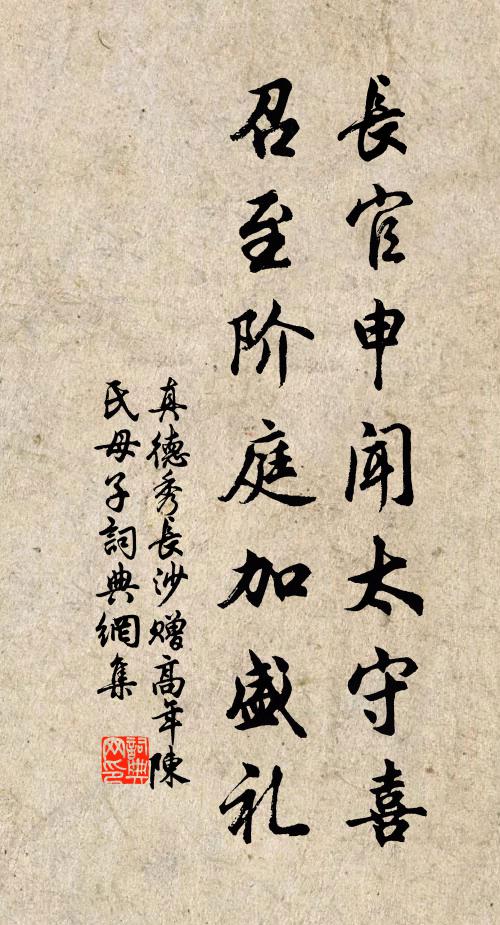 長官申聞太守喜
召至阶庭加盛礼
真德秀長沙贈高年陳
氏母子詞典網集
詞典
网印